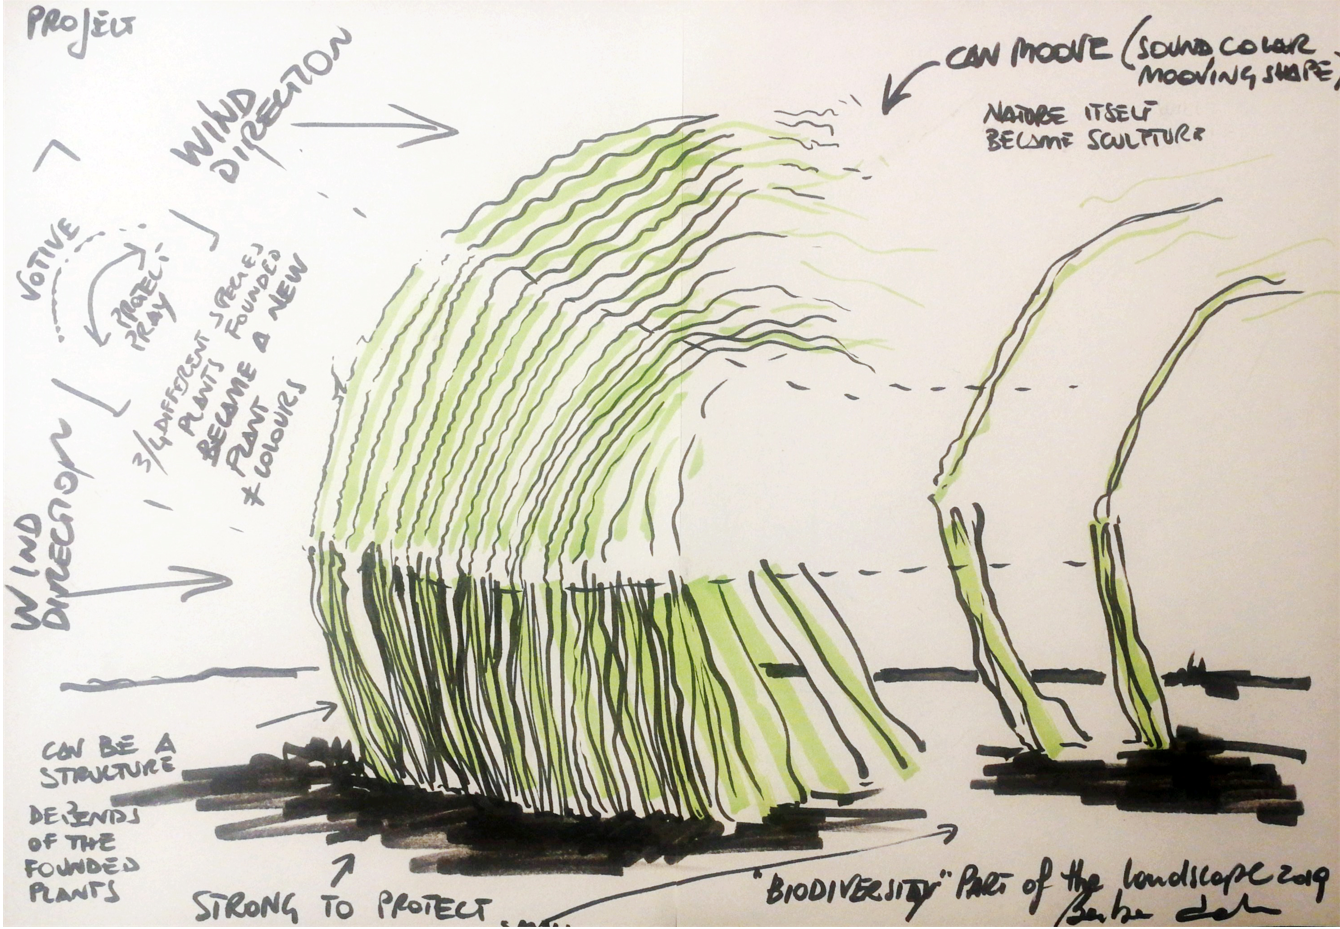 PROJECT
WIND
DIRECTION
CAN MOOVE (SOUND COLOUR
MOOVING SHAPE)
NATURE ITSELF
BECAME SCULPTURE
VOTIVE
PROTECT
PRAY
3/4 DIFFERENT SPECIES
PLANTS FOUNDED
BECAME A NEW
PLANT
≠ COLOURS
WIND
DIRECTION
CAN BE A
STRUCTURE
DEPENDS
OF THE
FOUNDED
PLANTS
STRONG TO PROTECT
"BIODIVERSITY" PART of the landscape 2019